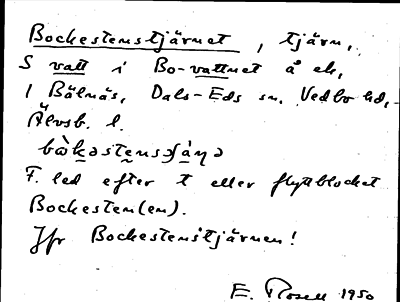 Bockestenstjärnet, tjärn,
S vatt i Bo-vattnet å ek,
i Bälnäs, Dals-Eds sn, Vedbo hd,
Älvsb. l.
F. led efter t eller flyttblocket
Bockesten(en).
Jfr Bockestenstjärnen!
E. Rosell 1950